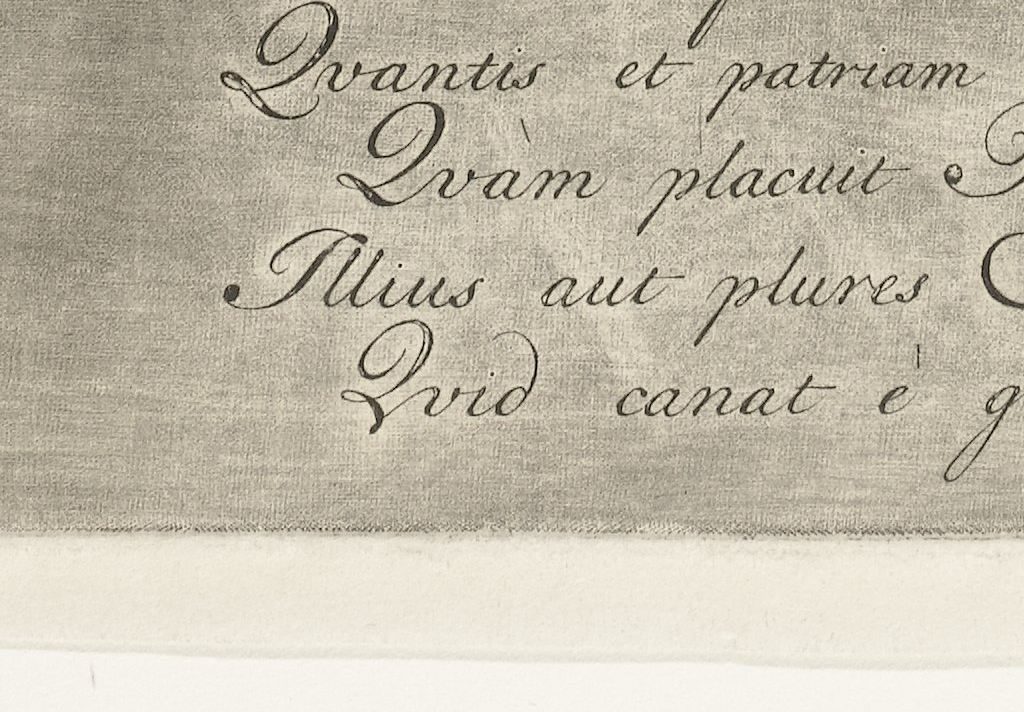 Qvantis et patriam
Qvàm placuit
Illius aut plures
Qvid canat è